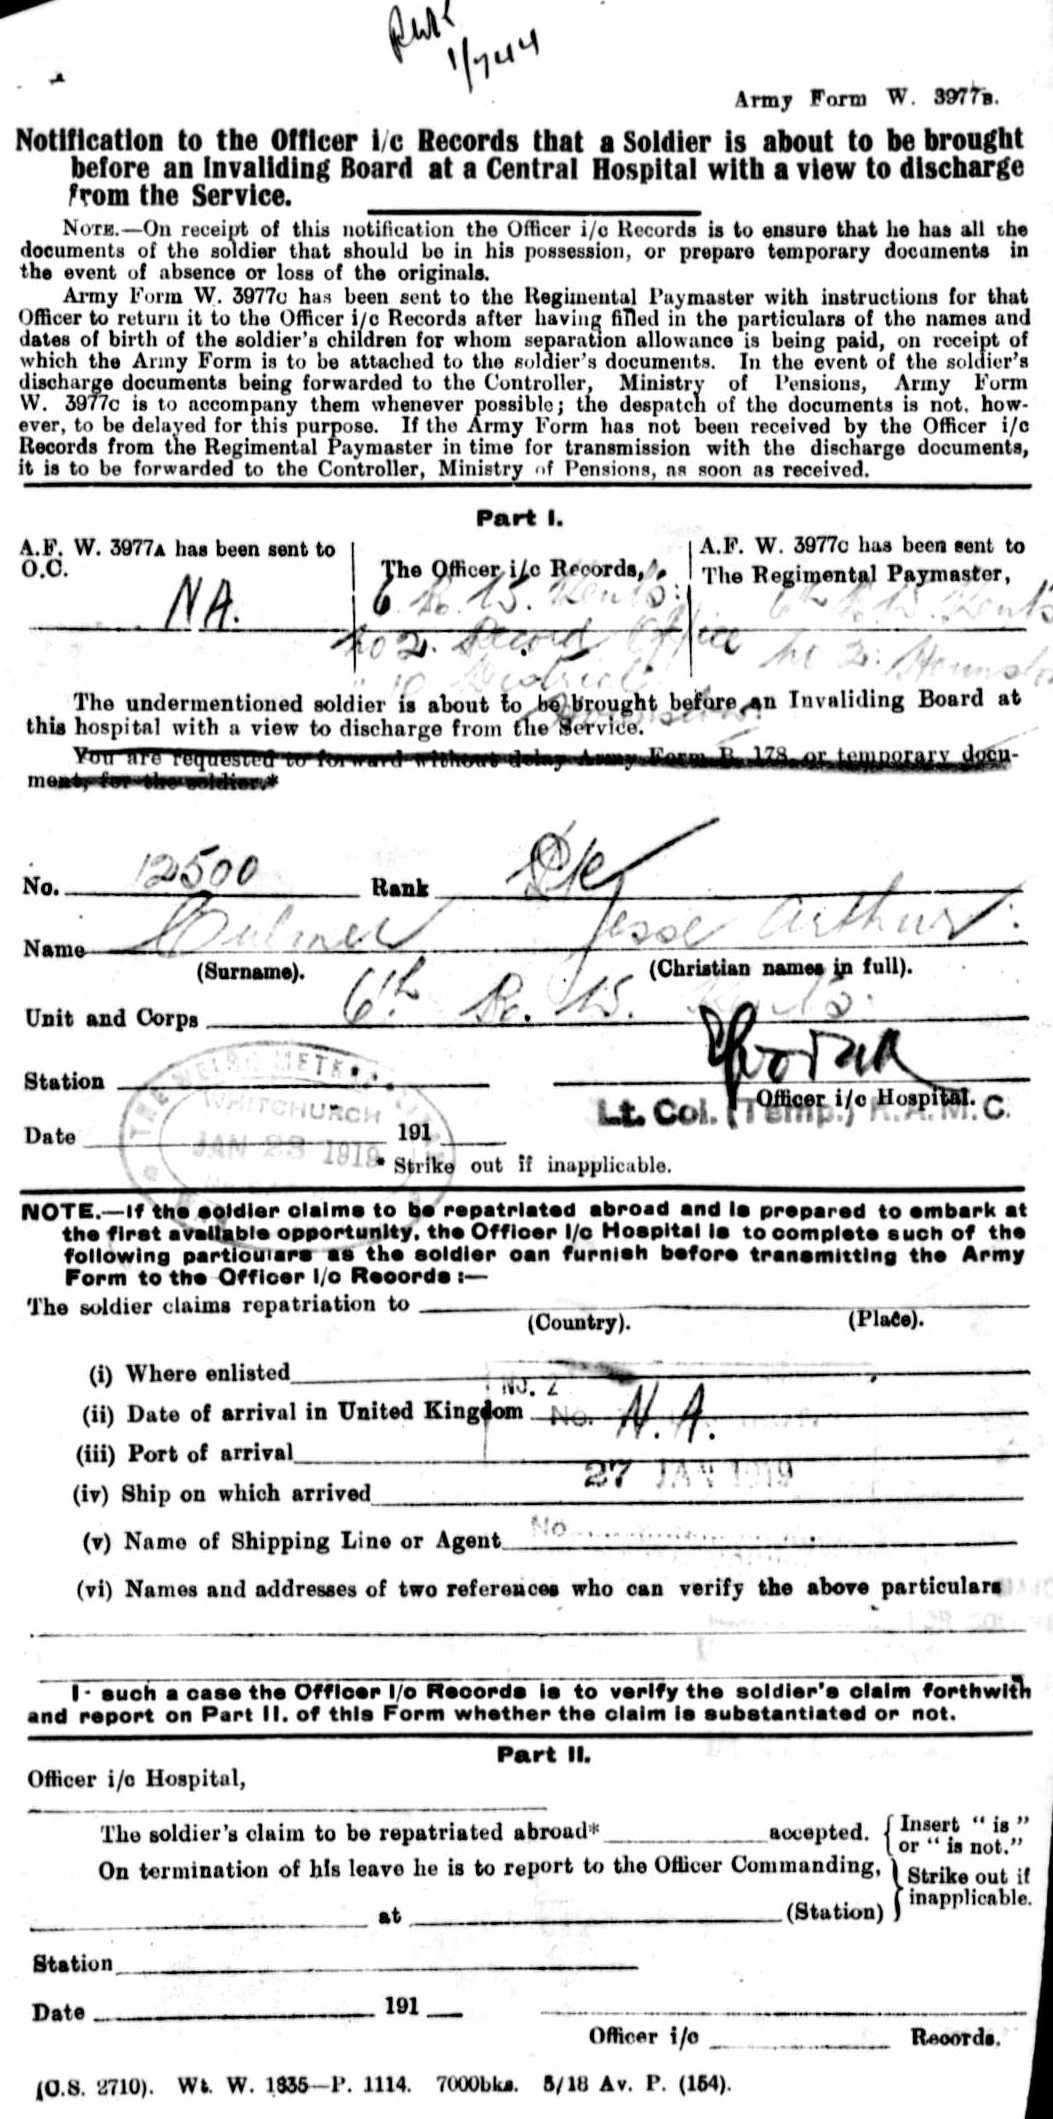 RWK
1/744
Army Form W. 3977B.
Notification to the Officer i/c Records that a Soldier is about to be brought
before an Invaliding Board at a Central Hospital with a view to discharge
from the Service.
NOTE.—On receipt of this notification the Officer i/c Records is to ensure that he has all the
documents of the soldier that should be in his possession, or prepare temporary documents in
the event of absence or loss of the originals.
Army Form W. 3977C has been sent to the Regimental Paymaster with instructions for that
Officer to return it to the Officer i/c Records after having filled in the particulars of the names and
dates of birth of the soldier's children for whom separation allowance is being paid, on receipt of
which the Army Form is to be attached to the soldier's documents. In the event of the soldier's
discharge documents being forwarded to the Controller, Ministry of Pensions, Army Form
W. 3977C is to accompany them whenever possible; the despatch of the documents is not, how-
ever, to be delayed for this purpose. If the Army Form has not been received by the Officer i/c
Records from the Regimental Paymaster in time for transmission with the discharge documents,
it is to be forwarded to the Controller, Ministry of Pensions, as soon as received.
Part I.
A.F. W. 3977A has been sent to
O.C.
NA.
The Officer i/c Records,
6 R. W. Kents.
No 2. Record Office
District
A.F. W. 3977C has been sent to
The Regimental Paymaster,
6th R. W. Kents
No 2.
The undermentioned soldier is about to be brought before an Invaliding Board at
this hospital with a view to discharge from the Service.
You are requested to forward without delay Army Form B. 178 or temporary docu-
ment, for the soldier.*
No. 12500 Rank Pte
Name Hulmer Jesse Arthur.
(Surname). (Christian names in full).
Unit and Corps 6th R. W. Kents.
Station
Officer i/c Hospital.
Lt. Col. (Temp.) R.A.M.C.
THE WELSH METRO
WHITCHURCH
JAN 23 1919
Date 191
* Strike out if inapplicable.
NOTE.—If the soldier claims to be repatriated abroad and is prepared to embark at
the first available opportunity, the Officer i/c Hospital is to complete such of the
following particulars as the soldier can furnish before transmitting the Army
Form to the Officer i/c Records :—
The soldier claims repatriation to
(Country). (Place).
(i) Where enlisted
No. 2
(ii) Date of arrival in United Kingdom No. N.A.
(iii) Port of arrival
27 JAN 1919
(iv) Ship on which arrived
(v) Name of Shipping Line or Agent No
(vi) Names and addresses of two references who can verify the above particulars
I such a case the Officer i/c Records is to verify the soldier's claim forthwith
and report on Part II. of this Form whether the claim is substantiated or not.
Part II.
Officer i/c Hospital,
The soldier's claim to be repatriated abroad* accepted. { Insert "is"
or "is not."
On termination of his leave he is to report to the Officer Commanding, } Strike out if
inapplicable.
at (Station)
Station
Date 191
Officer i/c Records.
(O.S. 2710). Wt. W. 1835—P. 1114. 7000bks. 5/18 Av. P. (154).